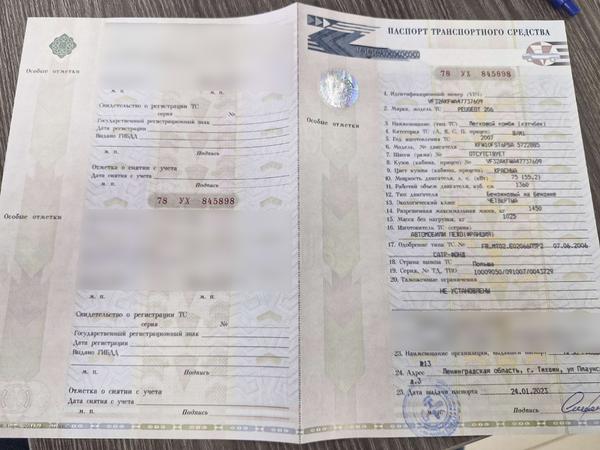 Особые отметки
м. п.
Подпись
Свидетельство о регистрации ТС
серия №
Государственный регистрационный знак
Дата регистрации
Выдано ГИБДД
м. п.
Подпись
Отметка о снятии с учета
Дата снятия с учета
м. п.
Подпись
78 УХ 845898
Особые отметки
м. п.
Подпись
Свидетельство о регистрации ТС
серия №
Государственный регистрационный знак
Дата регистрации
Выдано ГИБДД
м. п.
Подпись
Отметка о снятии с учета
Дата снятия с учета
м. п.
Подпись
ПАСПОРТ ТРАНСПОРТНОГО СРЕДСТВА
78 УХ 845898
Особые отметки
1. Идентификационный номер (VIN)
VF32AKFWA47737609
2. Марка, модель ТС PEUGEOT 206
3. Наименование (тип ТС) Легковой комби (хэтчбек)
4. Категория ТС (А, В, С, D, прицеп) B/M1
5. Год изготовления ТС 2007
6. Модель, № двигателя
7. Шасси (рама) № ОТСУТСТВУЕТ
8. Кузов (кабина, прицеп) № VF32AKFWA47737609
9. Цвет кузова (кабины, прицепа) КРАСНЫЙ
10. Мощность двигателя, л. с. (кВт) 75 (55,2)
11. Рабочий объем двигателя, куб. см 1360
12. Тип двигателя Бензиновый на бензине
13. Экологический класс ЧЕТВЕРТЫЙ
14. Разрешенная максимальная масса, кг 1450
15. Масса без нагрузки, кг 1025
16. Изготовитель ТС (страна)
АВТОМОБИЛИ ПЕЖО (ФРАНЦИЯ)
17. Одобрение типа ТС № 07.06.2006
САТР-ФОНД
18. Страна вывоза ТС Польша
19. Серия, № ТД, ТПО 10009050/091007/0043729
20. Таможенные ограничения
НЕ УСТАНОВЛЕНЫ
23. Наименование организации, выдавшей паспорт
№13
24. Адрес Ленинградская область, г. Тихвин, ул
д.3
25. Дата выдачи паспорта 24.01.2023
м. п. Подпись